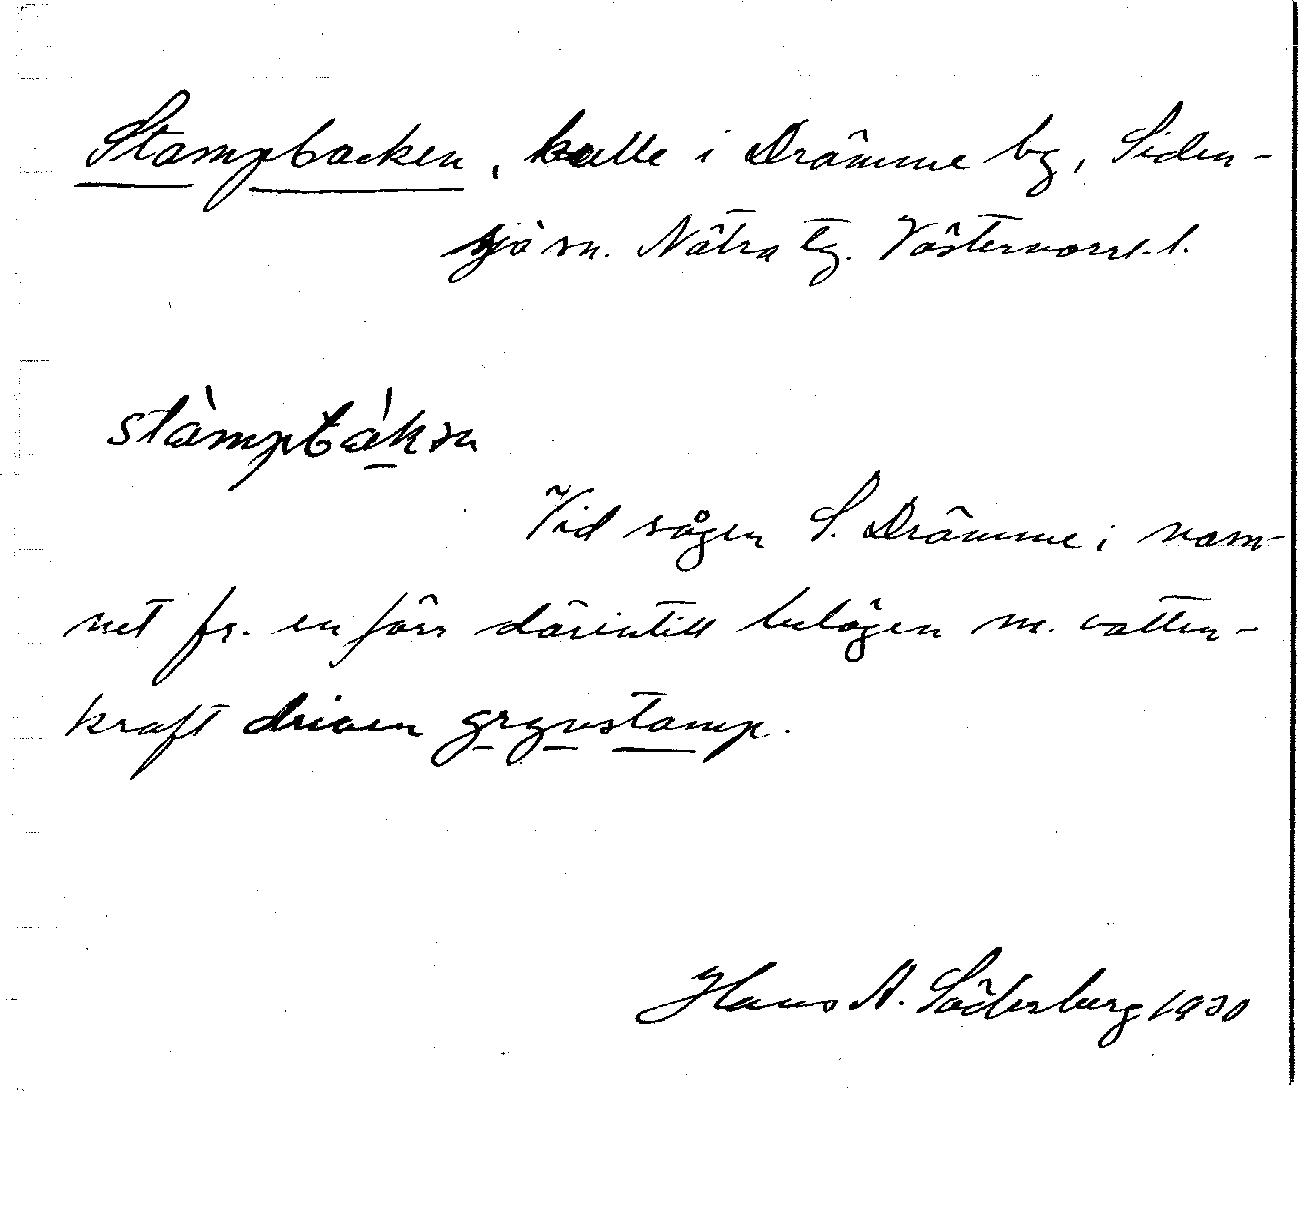 Stampbacken, kulle i Drömme by, Siden-
sjö sn. Nätra tg. Västernorrl. l.
stàmpbák̠sn
Vid vägen S. Drömme; nam-
net fr. en förr därintill belägen m. vatten-
kraft driven grynstamp.
Hans A. Söderberg 1930